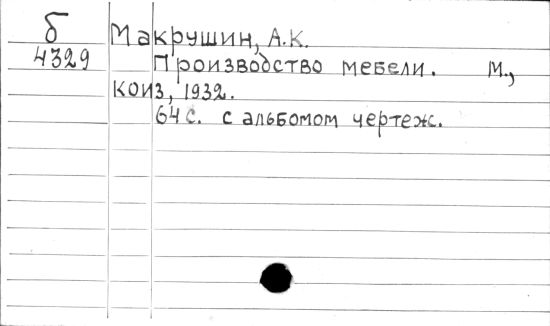 б
4329
Макрушин, А.К.
Производство мебели. М.,
КОИЗ, 1932.
64 с. с альбомом чертеж.